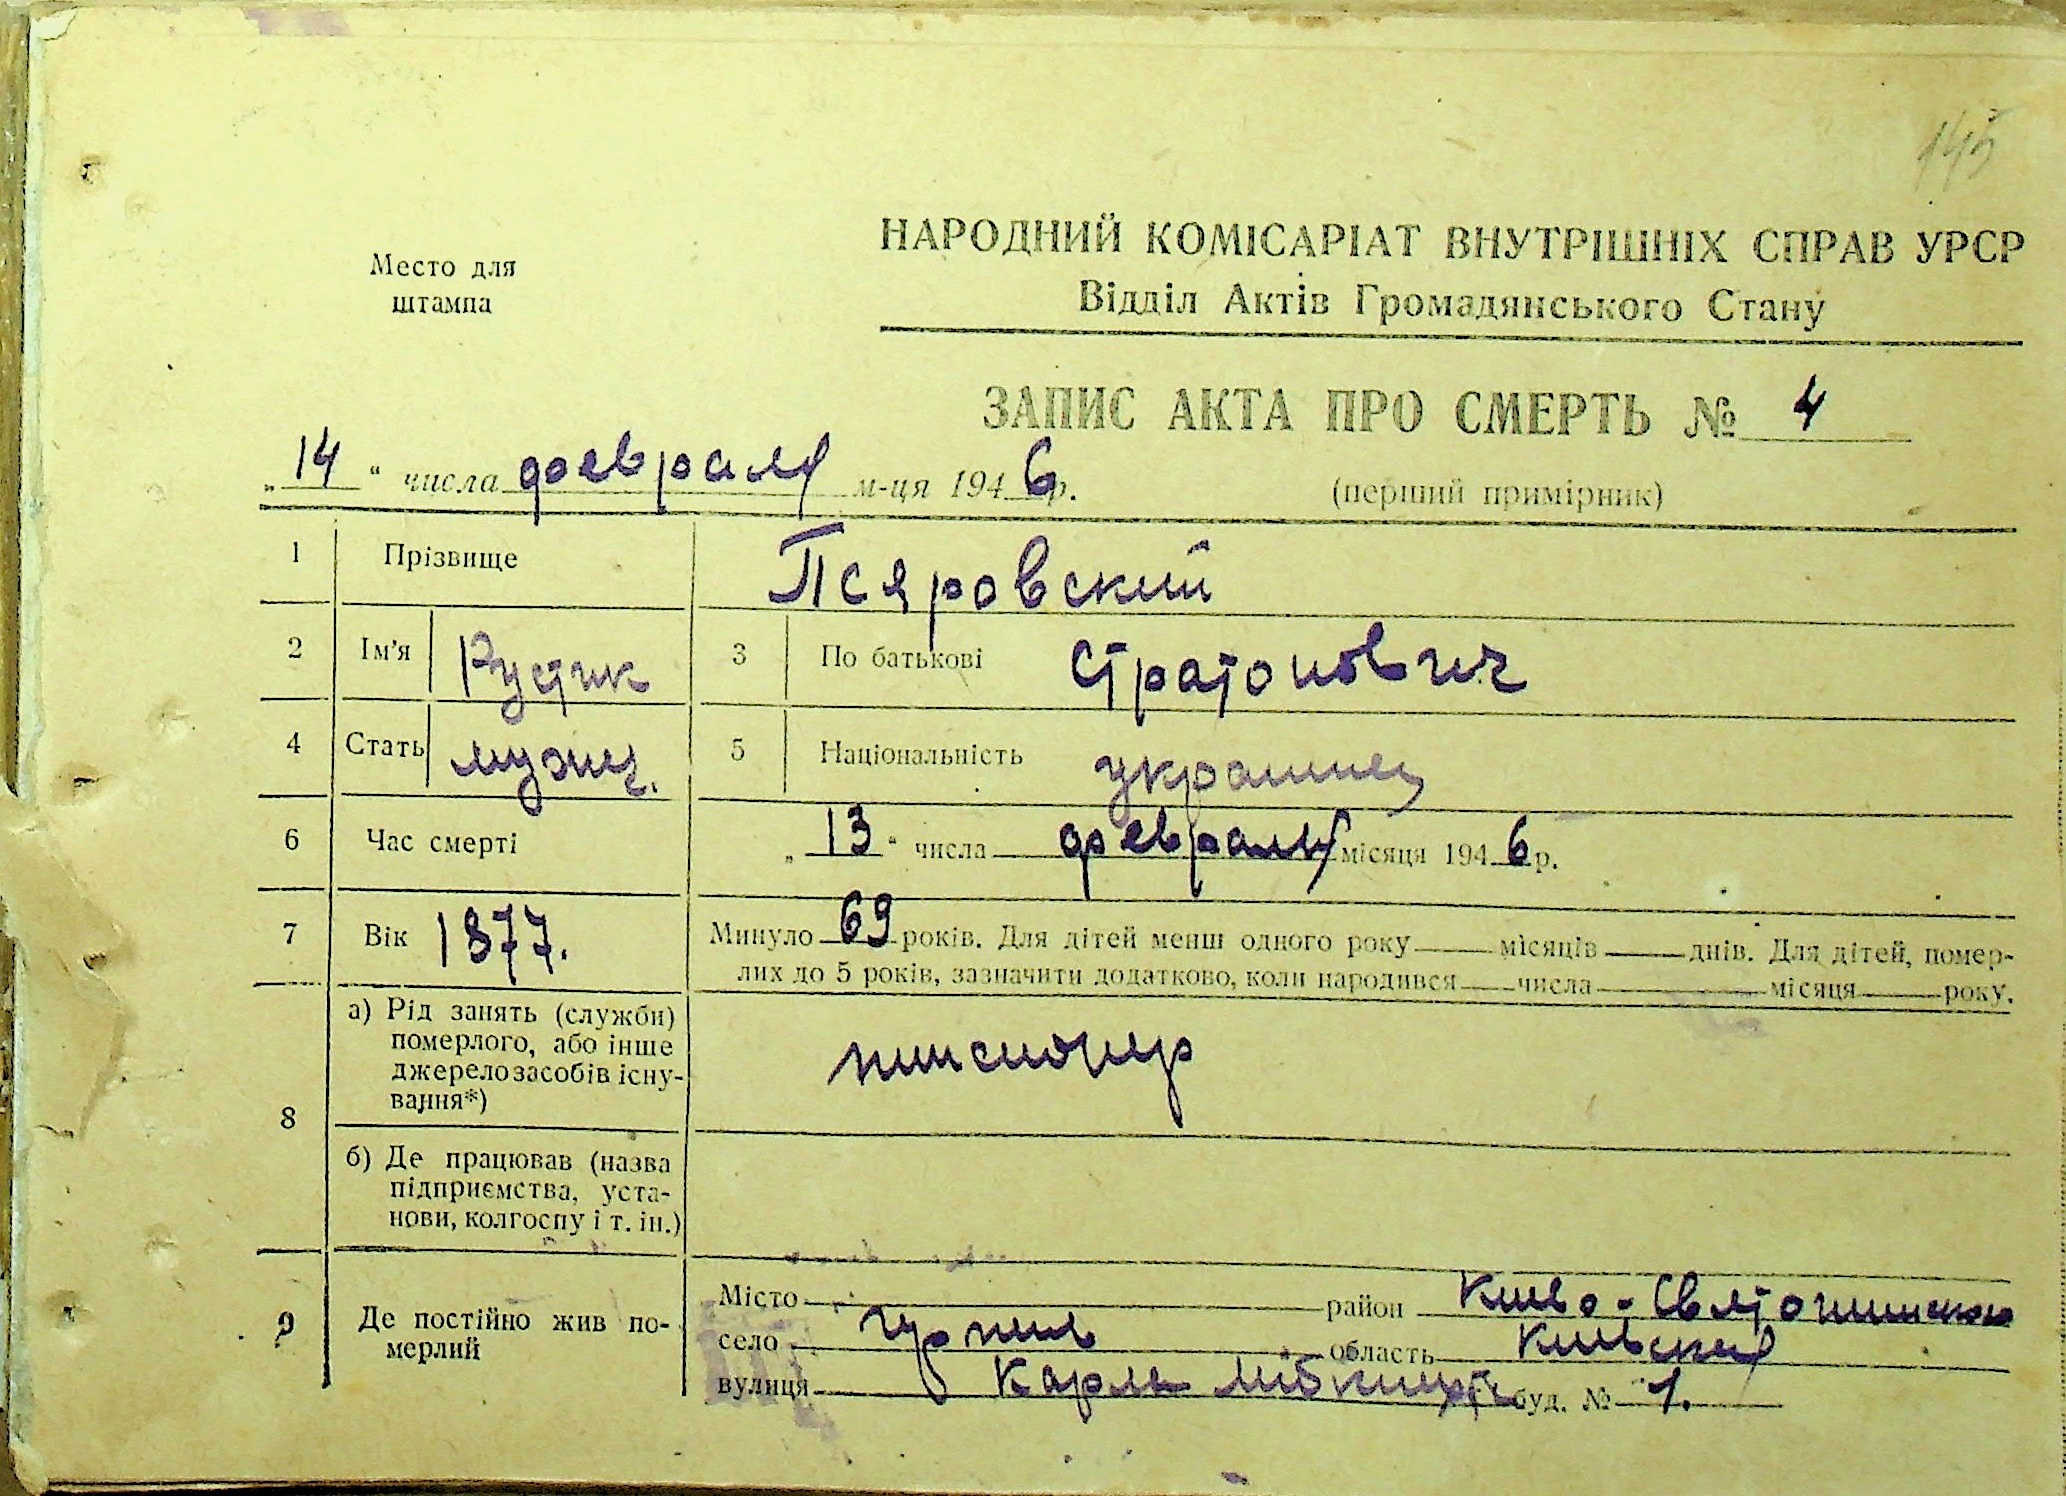 145
НАРОДНИЙ КОМІСАРІАТ ВНУТРІШНІХ СПРАВ УРСР
Место для штампа
Відділ Актів Громадянського Стану
ЗАПИС АКТА ПРО СМЕРТЬ № 4
„14“ числа февраля м-ця 1946 р. (перший примірник)
1 Прізвище Псяровский
2 Ім'я Рустик 3 По батькові Стратонович
4 Стать мужч. 5 Національність украинец
6 Час смерті „13“ числа февраля місяця 1946 р.
7 Вік 1877. Минуло 69 років. Для дітей менш одного року місяців днів. Для дітей, помер-
лих до 5 років, зазначити додатково, коли народився числа місяця року.
8 а) Рід занять (служби)
померлого, або інше
джерело засобів існу-
вання*) пенсионер
б) Де працював (назва
підприємства, уста-
нови, колгоспу і т. ін.)
9 Де постійно жив по-
мерлий
Місто район Киево-Святошинского
село область Киевская
вулиця Карла Лібкнехта буд. № 1.